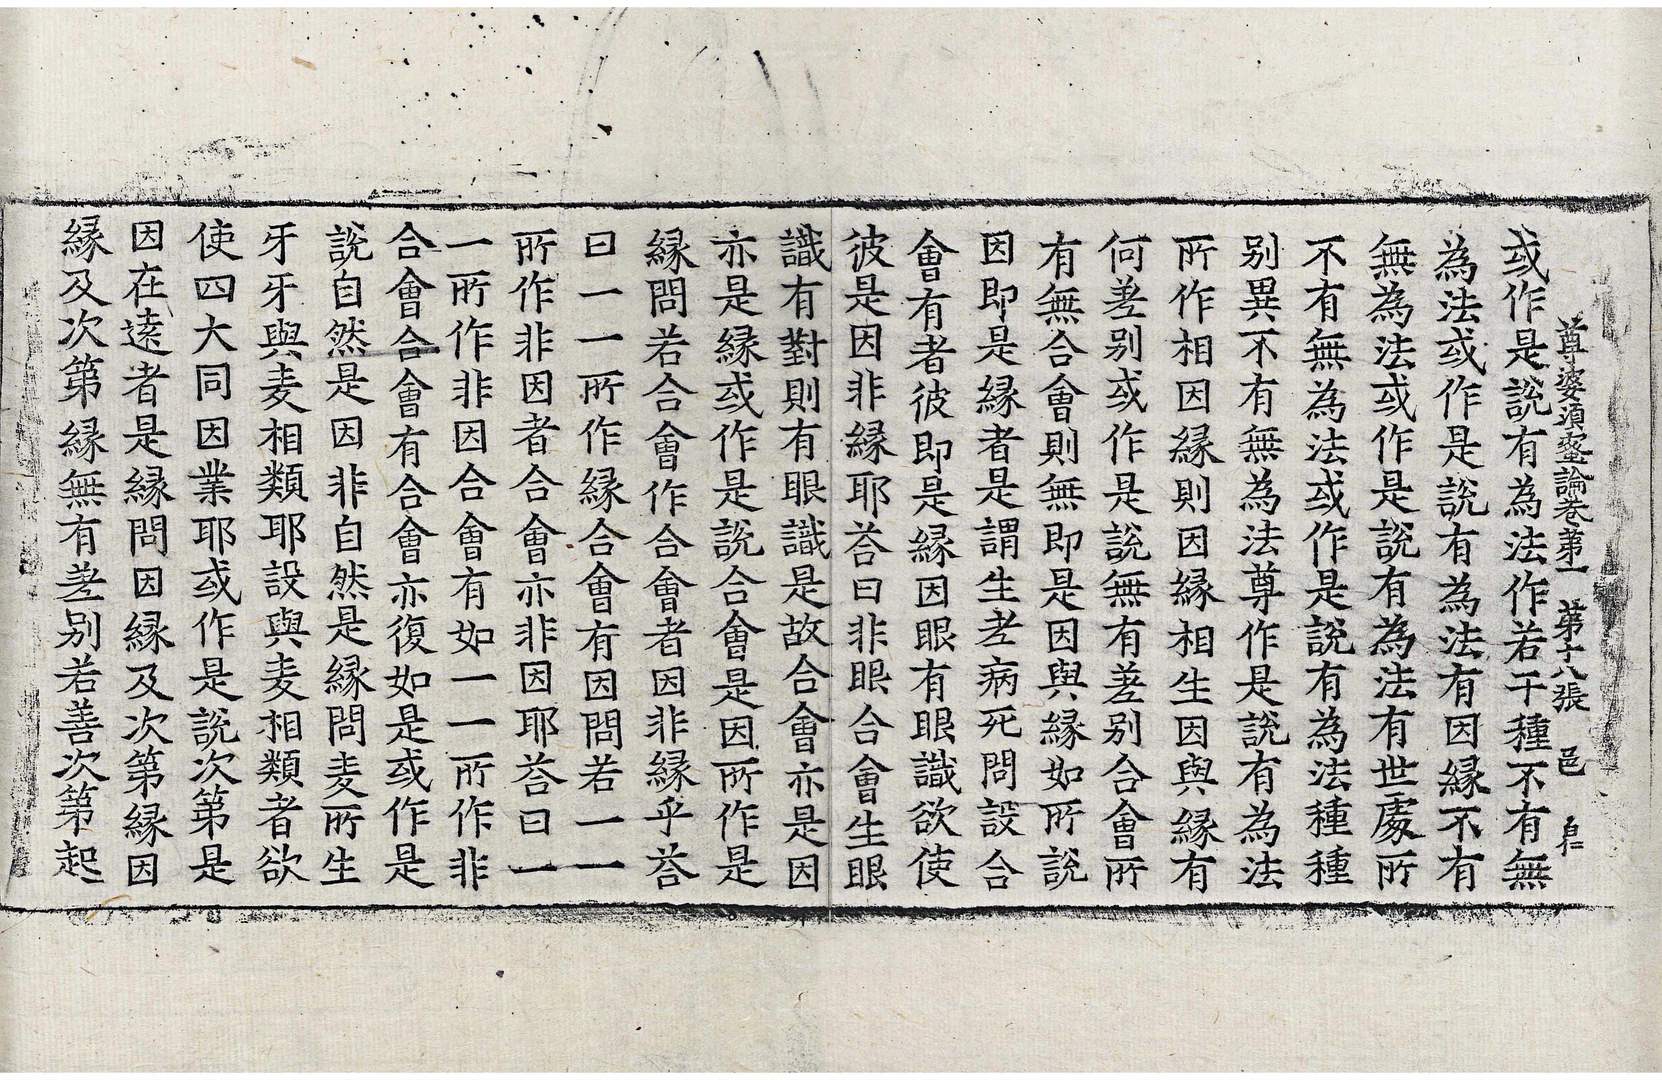 尊婆湏蜜論卷第一　第十八張　邑　㠯仁
或作是說有為法作若干種不有無
為法或作是說有為法有因縁不有
無為法或作是說有為法有世處所
不有無為法或作是說有為法種種
别異不有無為法尊作是說有為法
所作相因縁則因縁相生因與縁有
何差别或作是說無有差别合會所
有無合會則無即是因與縁如所說
因即是縁者是謂生老病死問設合
會有者彼即是縁因眼有眼識欲使
彼是因非縁耶荅曰非眼合會生眼
識有對則有眼識是故合會亦是因
亦是縁或作是說合會是因所作是
縁問若合會作合會者因非縁乎荅
曰一一所作縁合會有因問若一一
所作非因者合會亦非因耶荅曰一
一所作非因合會有如一一所作非
合會合會有合會亦復如是或作是
說自然是因非自然是縁問麦所生
牙牙與麦相類耶設與麦相類者欲
使四大同因業耶或作是說次第是
因在遠者是縁問因縁及次第縁因
縁及次第縁無有差别若善次第起